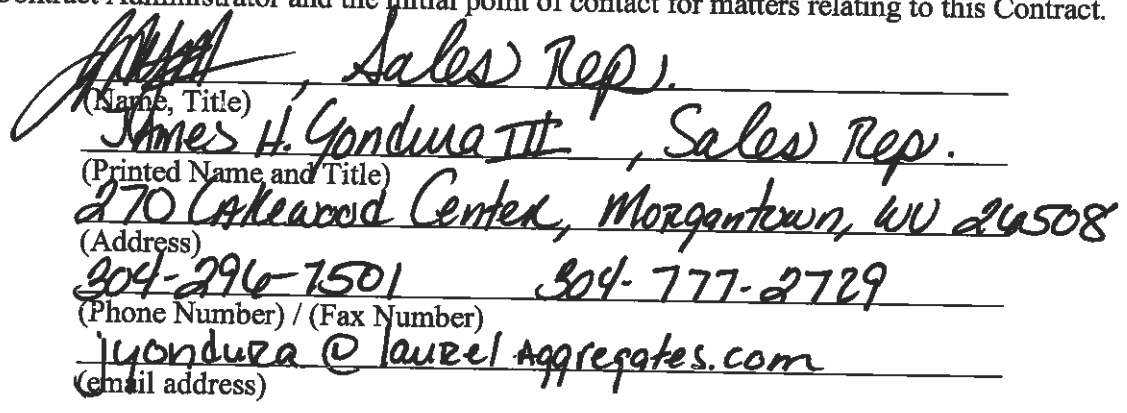 Contract Administrator and the initial point of contact for matters relating to this Contract.
, Sales Rep.
(Name, Title)
James H. Yondura III , Sales Rep.
(Printed Name and Title)
270 Lakewood Center, Morgantown, WV 26508
(Address)
304-296-7501 304-777-2729
(Phone Number) / (Fax Number)
jyondura @ laurelAggregates.com
(email address)